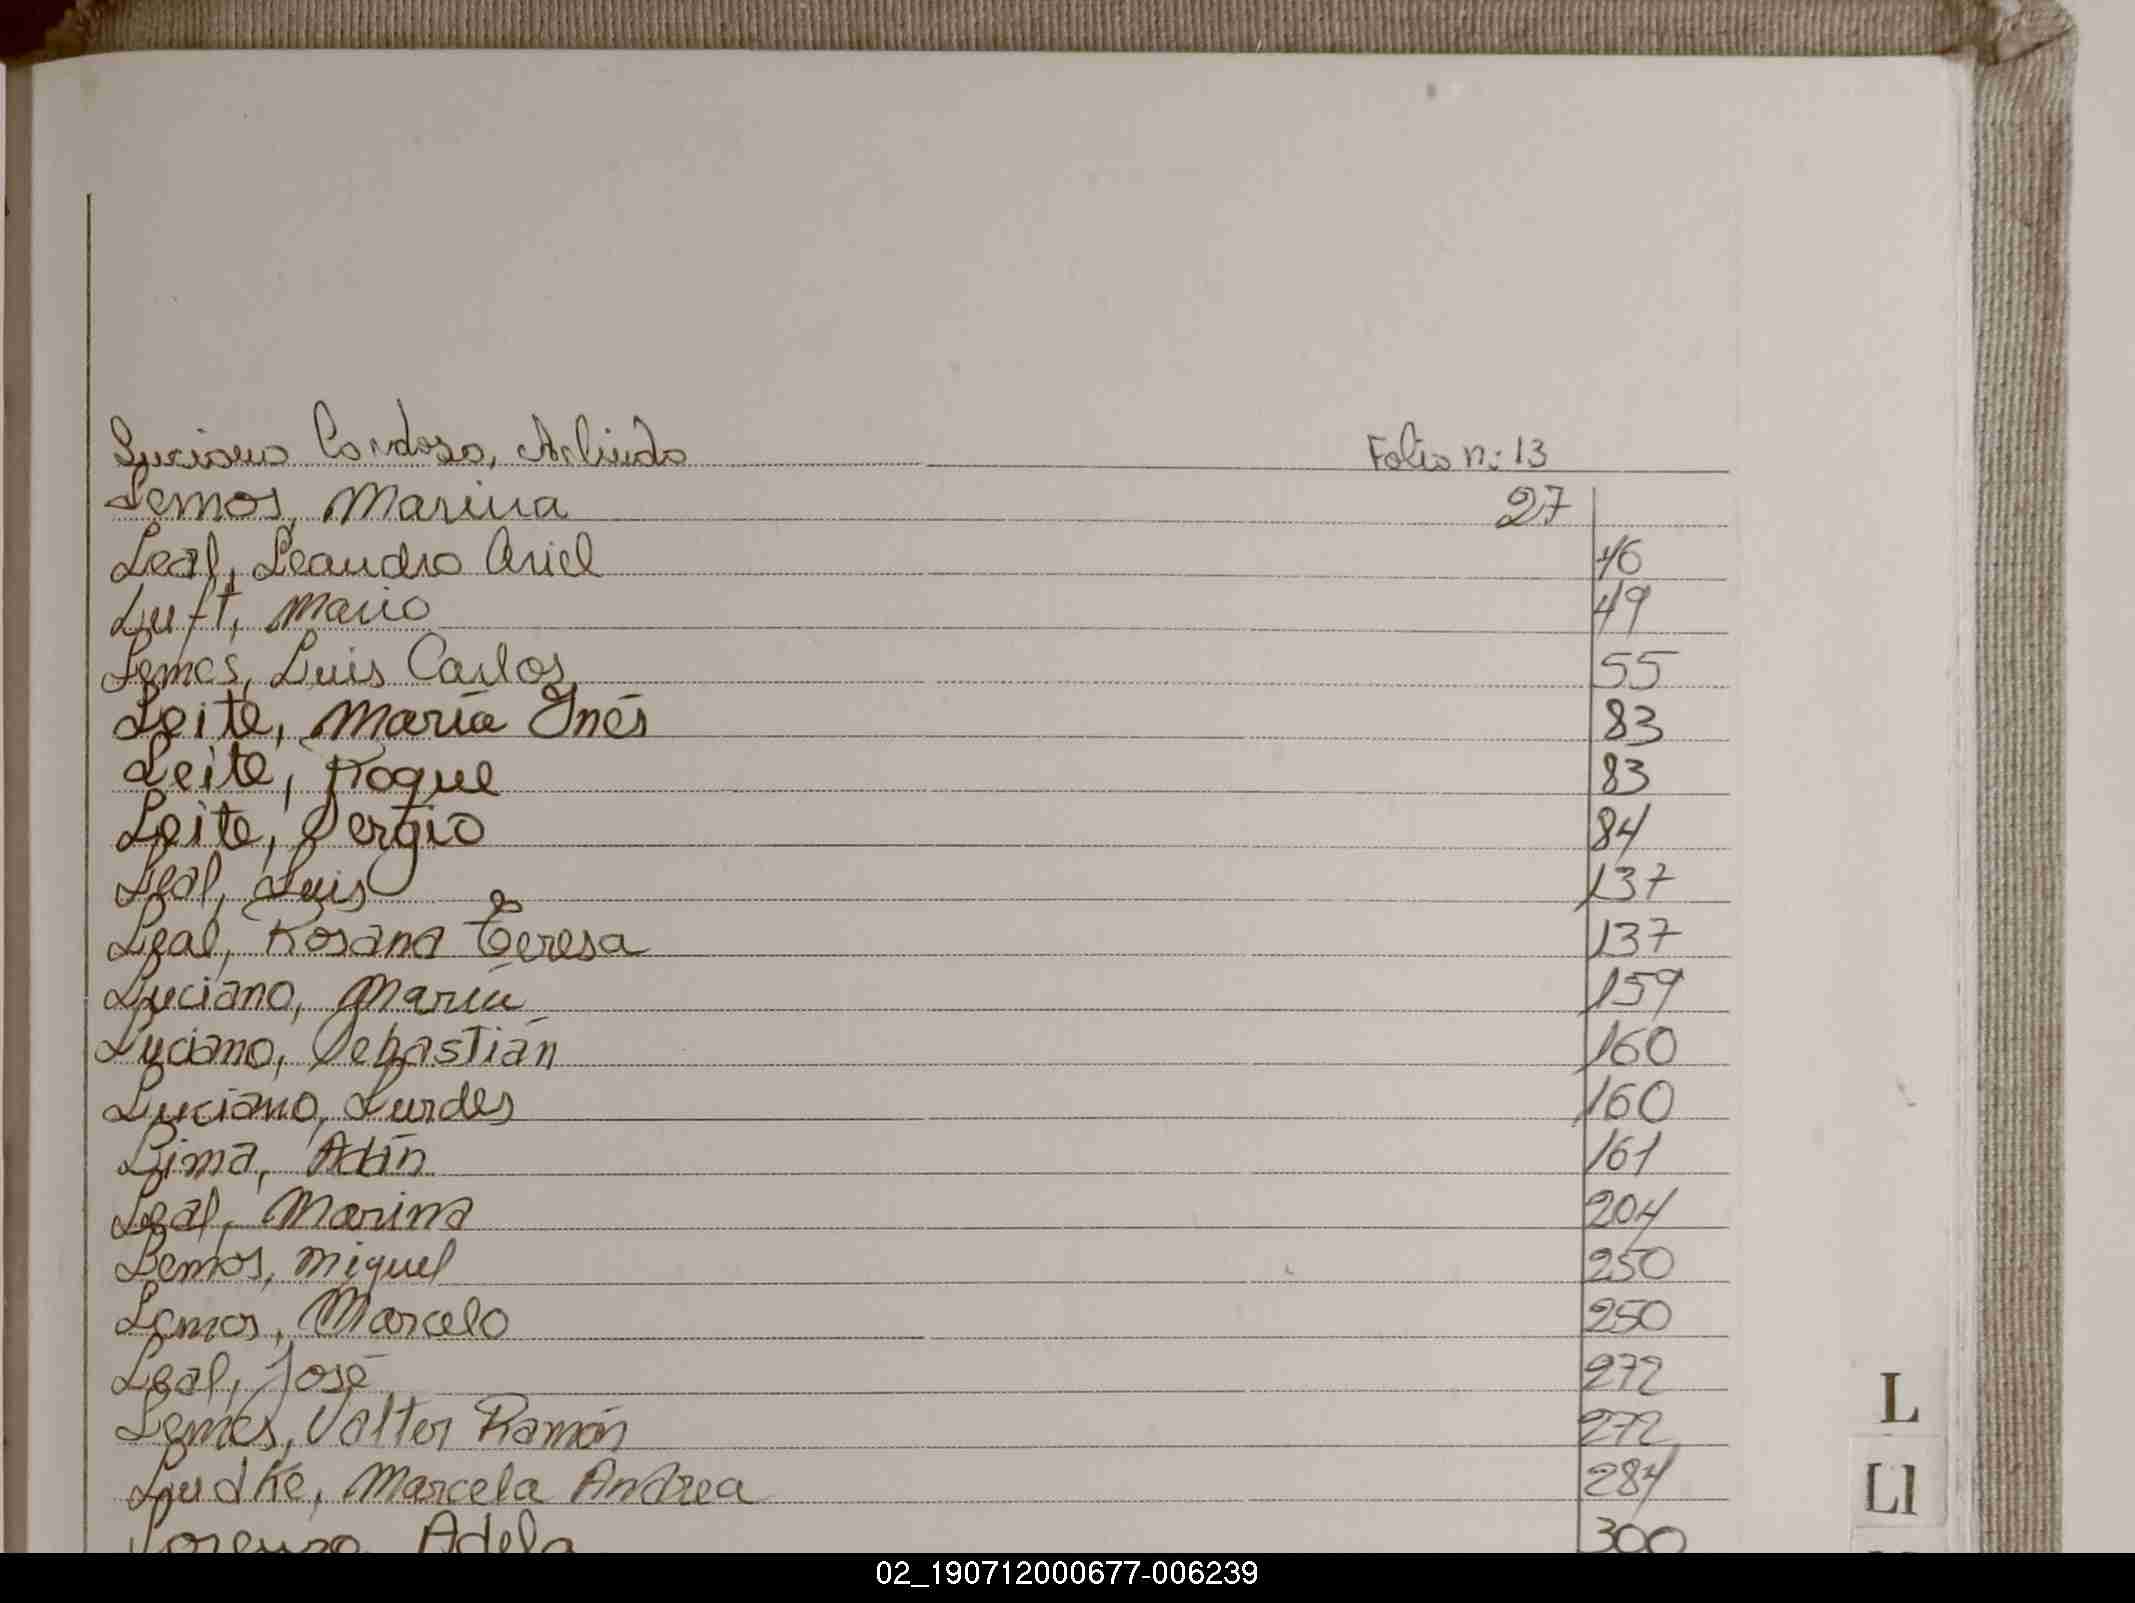 Luciano Cardoso, Arlindo Folio n: 13
Lemos, Marina 27
Leal, Leandro Ariel 46
Luft, Mario 49
Lemes, Luis Carlos 55
Leite, María Inés 83
Leite, Roque 83
Leite, Sergio 84
Leal, Luis 137
Leal, Rosana Teresa 137
Luciano, María 159
Luciano, Sebastián 160
Luciano, Lurdes 160
Lima, Adán 161
Leal, Marina 204
Lemos, Miguel 250
Lemos, Marcelo 250
Leal, José 272
Lemes, Valter Ramón 272
Ludke, Marcela Andrea 284
Lorenzo, Adela 300
L
Ll
02_190712000677-006239